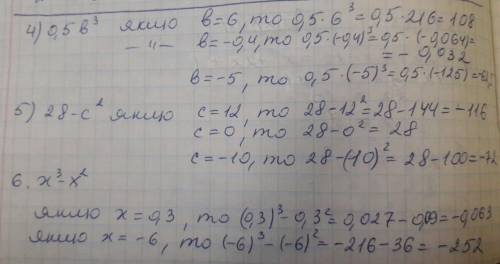 4) 0,5в³ якщо в=6, то 0,5·6³=0,5·216=108
–"– в=-0,4, то 0,5·(-0,4)³=0,5·(-0,064)=
=-0,032
в=-5, то 0,5·(-5)³=0,5·(-125)=
5) 28-с² якщо с=12, то 28-12²=28-144=-116
с=0, то 28-0²=28
с=-10, то 28-(10)²=28-100=-72
6. х³-х²
якщо х=0,3, то (0,3)³-0,3²=0,027-0,09=-0,063
якщо х=-6, то (-6)³-(-6)²=-216-36=-252